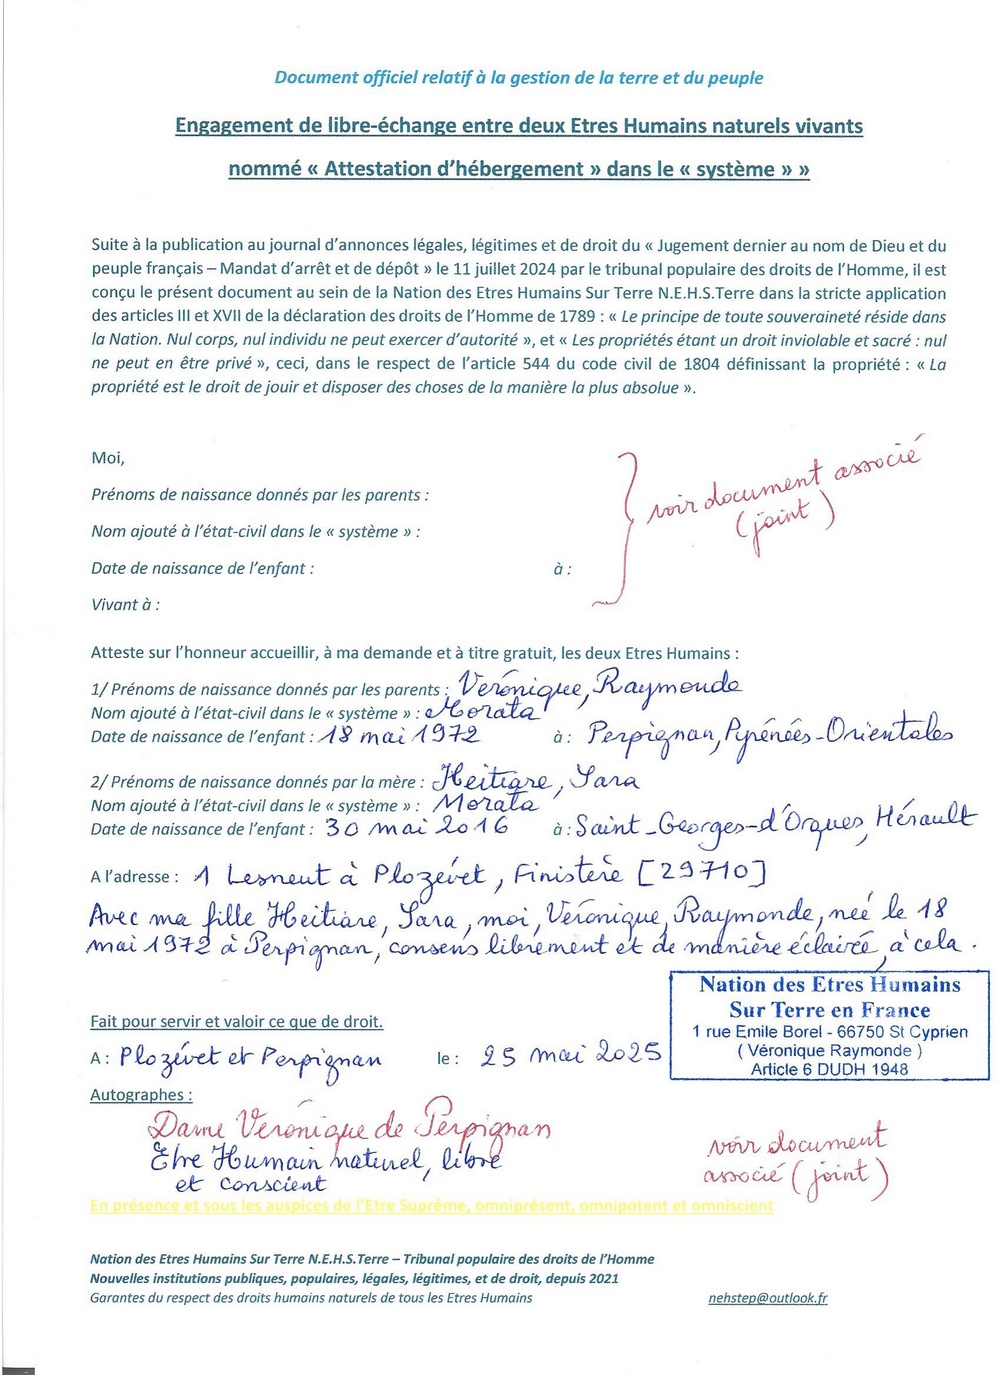 Document officiel relatif à la gestion de la terre et du peuple
Engagement de libre-échange entre deux Etres Humains naturels vivants
nommé « Attestation d'hébergement » dans le « système » »
Suite à la publication au journal d'annonces légales, légitimes et de droit du « Jugement dernier au nom de Dieu et du
peuple français – Mandat d'arrêt et de dépôt » le 11 juillet 2024 par le tribunal populaire des droits de l'Homme, il est
conçu le présent document au sein de la Nation des Etres Humains Sur Terre N.E.H.S.Terre dans la stricte application
des articles III et XVII de la déclaration des droits de l'Homme de 1789 : « Le principe de toute souveraineté réside dans
la Nation. Nul corps, nul individu ne peut exercer d'autorité », et « Les propriétés étant un droit inviolable et sacré : nul
ne peut en être privé », ceci, dans le respect de l'article 544 du code civil de 1804 définissant la propriété : « La
propriété est le droit de jouir et disposer des choses de la manière la plus absolue ».
Moi,
Prénoms de naissance donnés par les parents :
Nom ajouté à l'état-civil dans le « système » :
Date de naissance de l'enfant : à :
Vivant à :
voir document associé
(joint)
Atteste sur l'honneur accueillir, à ma demande et à titre gratuit, les deux Etres Humains :
1/ Prénoms de naissance donnés par les parents : Véronique, Raymonde
Nom ajouté à l'état-civil dans le « système » : Morata
Date de naissance de l'enfant : 18 mai 1972 à : Perpignan, Pyrénées-Orientales
2/ Prénoms de naissance donnés par la mère : Heitiare, Sara
Nom ajouté à l'état-civil dans le « système » : Morata
Date de naissance de l'enfant : 30 mai 2016 à : Saint-Georges-d'Orques, Hérault
A l'adresse : 1 Lesneut à Plozévet, Finistère [29710]
Avec ma fille Heitiare, Sara, moi, Véronique, Raymonde, née le 18
mai 1972 à Perpignan, consens librement et de manière éclairée, à cela.
Nation des Etres Humains
Sur Terre en France
1 rue Emile Borel - 66750 St Cyprien
( Véronique Raymonde )
Article 6 DUDH 1948
Fait pour servir et valoir ce que de droit.
A : Plozévet et Perpignan le : 25 mai 2025
Autographes :
Dame Véronique de Perpignan
Etre Humain naturel, libre
et conscient
voir document
associé (joint)
En présence et sous les auspices de l'Etre Suprême, omniprésent, omnipotent et omniscient
Nation des Etres Humains Sur Terre N.E.H.S.Terre – Tribunal populaire des droits de l'Homme
Nouvelles institutions publiques, populaires, légales, légitimes, et de droit, depuis 2021
Garantes du respect des droits humains naturels de tous les Etres Humains nehstep@outlook.fr